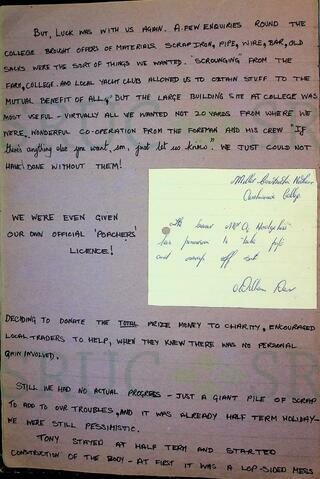 BUT, LUCK WAS WITH US AGAIN. A FEW ENQUIRIES ROUND THE
COLLEGE BROUGHT OFFERS OF MATERIALS. SCRAP IRON, PIPE, WIRE, BAR, OLD
SACKS WERE THE SORT OF THINGS WE WANTED. "SCROUNGING" FROM THE
FARM, COLLEGE, AND LOCAL YACHT CLUB ALLOWED US TO OBTAIN STUFF TO THE
MUTUAL BENEFIT OF ALL, BUT THE LARGE BUILDING SITE AT COLLEGE WAS
MOST USEFUL - VIRTUALLY ALL WE WANTED NOT 20 YARDS FROM WHERE WE
WERE. WONDERFUL CO-OPERATION FROM THE FOREMAN AND HIS CREW "If
there's anything else you want, son, just let us know". WE JUST COULD NOT
HAVE DONE WITHOUT THEM!
Miller Construction
College.
WE WERE EVEN GIVEN
OUR OWN OFFICIAL 'POACHERS'
LICENCE!
Mr
has permission to take pipe
and scrap off site
DECIDING TO DONATE THE TOTAL PRIZE MONEY TO CHARITY, ENCOURAGED
LOCAL TRADERS TO HELP, WHEN THEY KNEW THERE WAS NO PERSONAL
GAIN INVOLVED.
STILL WE HAD NO ACTUAL PROGRESS - JUST A GIANT PILE OF SCRAP
TO ADD TO OUR TROUBLES, AND IT WAS ALREADY HALF TERM HOLIDAY-
WE WERE STILL PESSIMISTIC.
TONY STAYED AT HALF TERM AND STARTED
CONSTRUCTION OF THE BODY - AT FIRST IT WAS A LOP-SIDED MESS